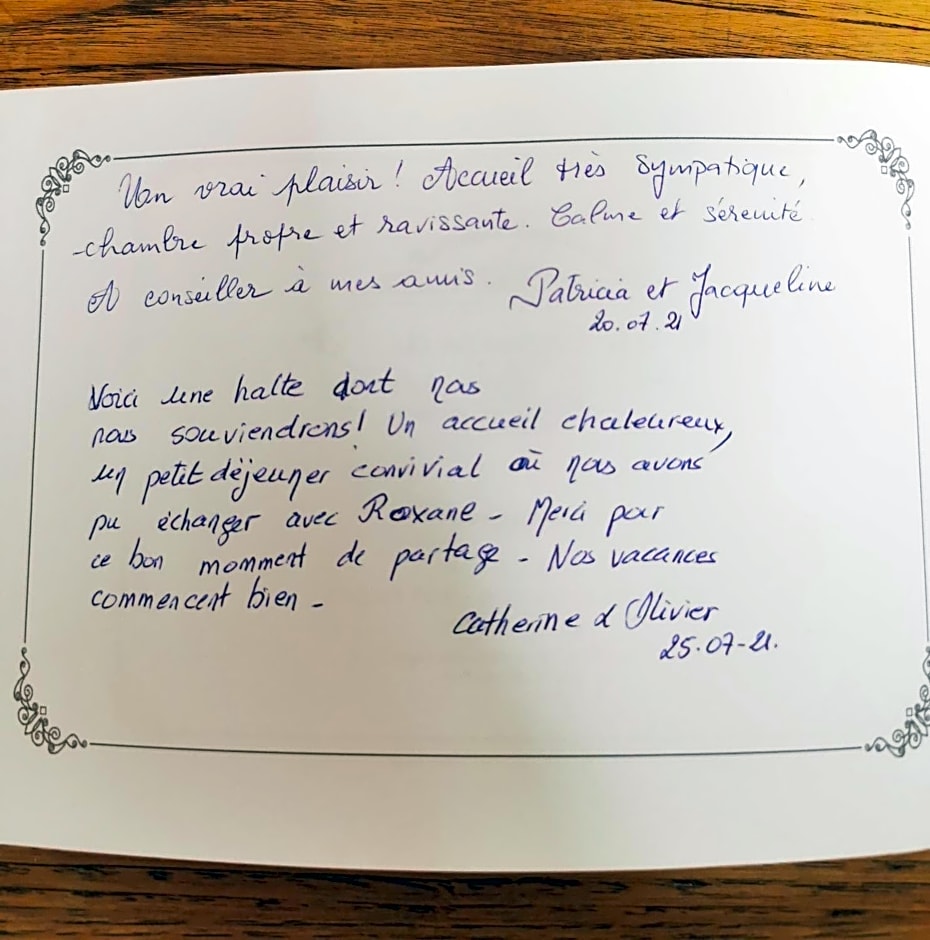 Un vrai plaisir ! Accueil très sympatique,
chambre propre et ravissante. Calme et sérénité.
A conseiller à mes amis. Patricia et Jacqueline
20.07.21
Voici une halte dont nous
nous souviendrons! Un accueil chaleureux,
un petit déjeuner convivial où nous avons
pu échanger avec Roxane - Merci pour
ce bon momment de partage - Nos vacances
commencent bien -
Catherine & Olivier
25-07-21.